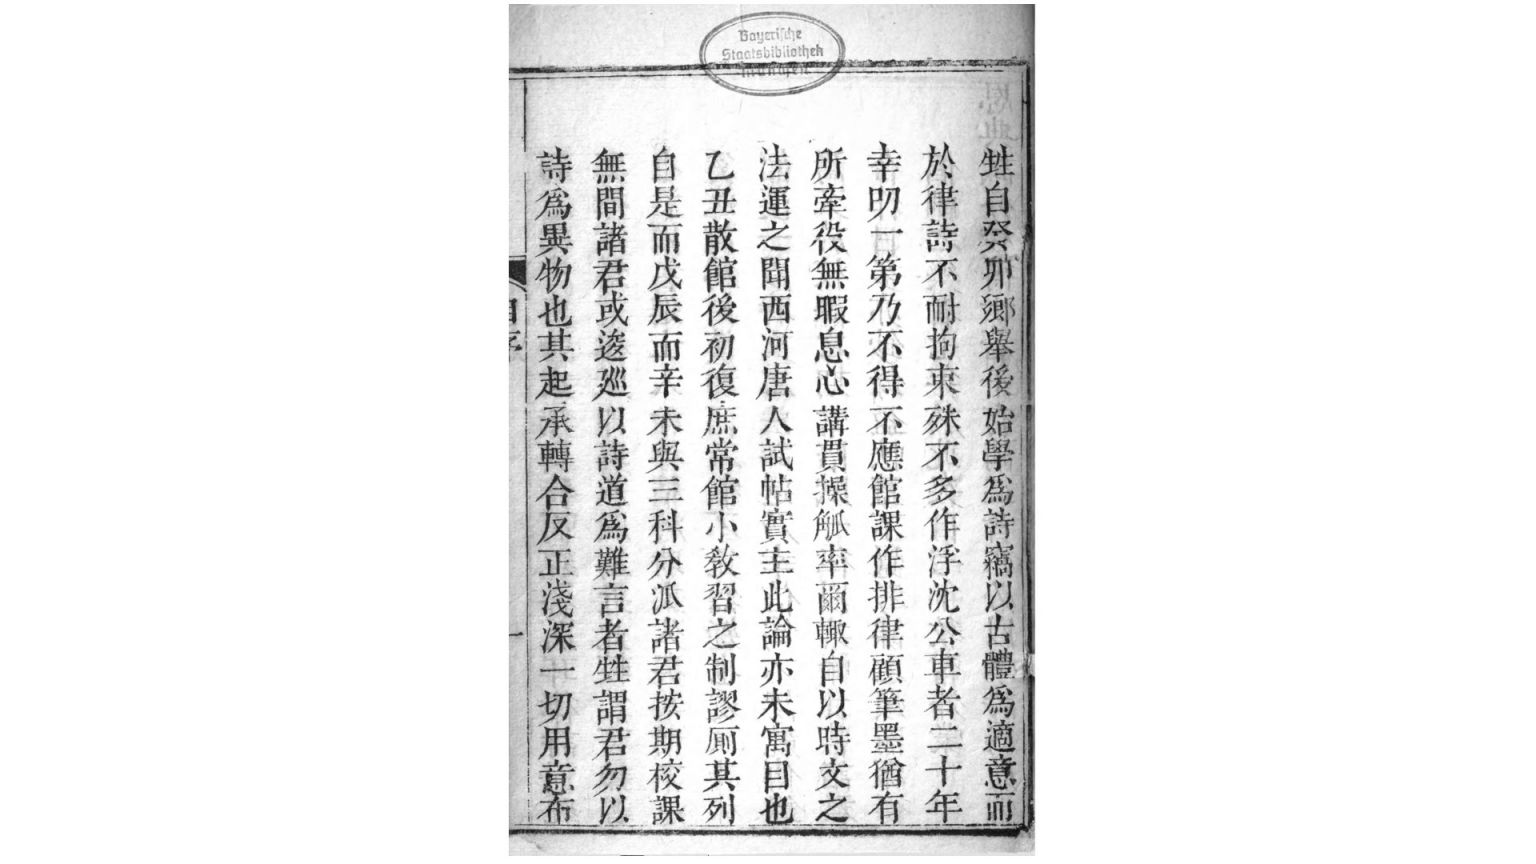 Bayerische
Staatsbibliothek
München
甡自癸丱鄉舉後始學爲詩竊以古體爲適意而
於律詩不耐拘束殊不多作浮沈公車者二十年
幸叨一第乃不得不應館課作排律顧筆墨猶有
所牽役無暇息心講貫操觚率爾輙自以時文之
法運之聞西河唐人試帖實主此論亦未寓目也
乙丑散館後初復庶常館小敎習之制謬厠其列
自是而戊辰而辛未與三科分派諸君按期校課
無間諸君或逡廵以詩道爲難言者甡謂君勿以
詩爲異物也其起承轉合反正淺深一切用意布
自序
一